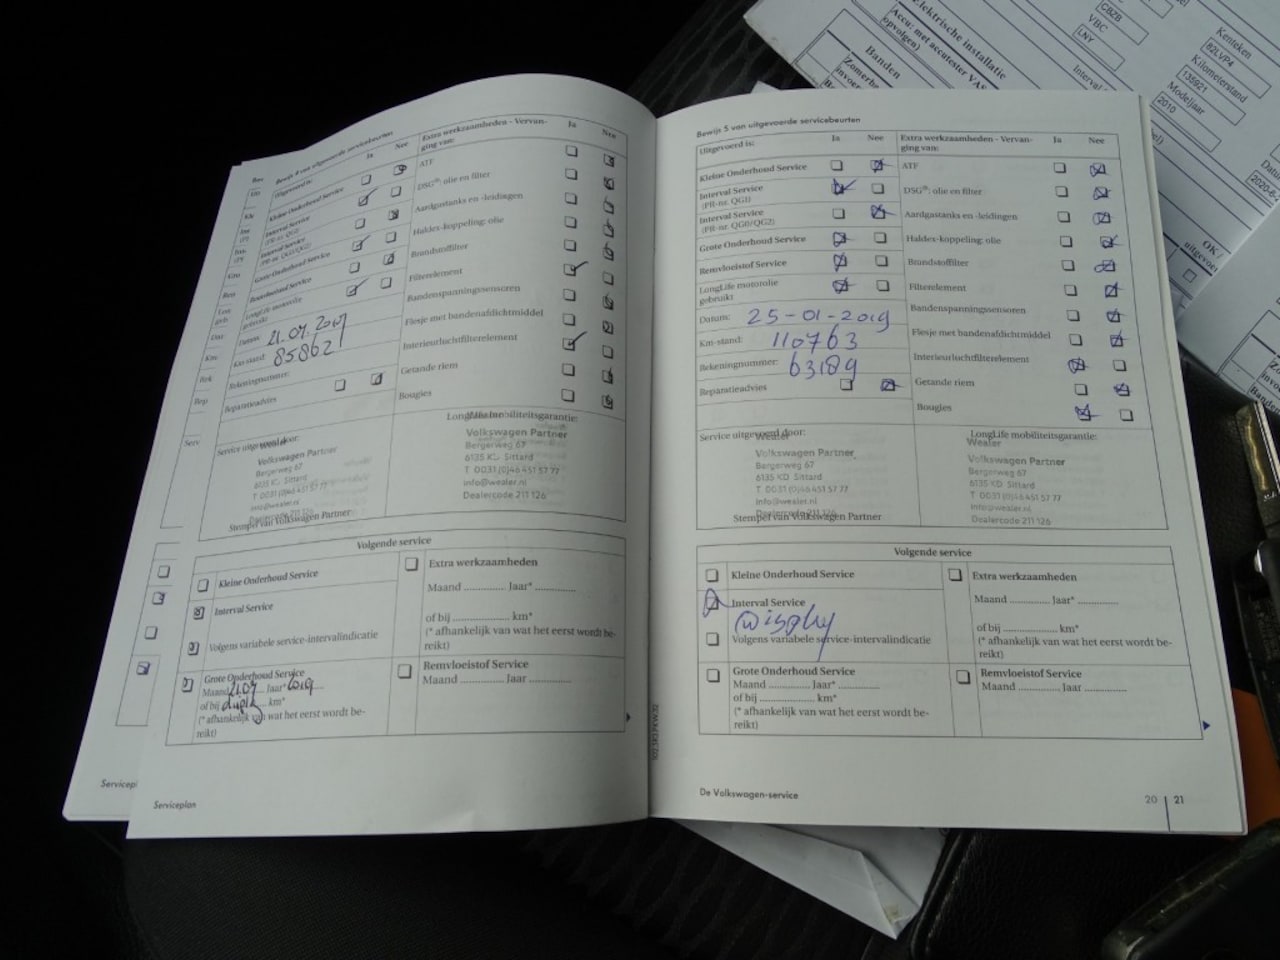 Bewijs 4 van uitgevoerde servicebeurten
Uitgevoerd is:
Ja
Nee
Kleine Onderhoud Service
Interval Service
(PR-nr. QG1)
Interval Service
(PR-nr. QG0/QG2)
Grote Onderhoud Service
Remvloeistof Service
LongLife motorolie
gebruikt
Datum:
Km-stand: 85862
Rekeningnummer:
Reparatieadvies
Extra werkzaamheden - Vervan-
ging van:
Ja
Nee
ATF
DSG®: olie en filter
Aardgastanks en -leidingen
Haldex-koppeling: olie
Brandstoffilter
Filterelement
Bandenspanningssensoren
Flesje met bandenafdichtmiddel
Interieurluchtfilterelement
Getande riem
Bougies
Service uitgevoerd door:
Wealer
Volkswagen Partner
Bergerweg 67
6135 KD Sittard
T 0031 (0)46 451 57 77
info@wealer.nl
Dealercode 211 126
Stempel van Volkswagen Partner
LongLife mobiliteitsgarantie:
Wealer
Volkswagen Partner
Bergerweg 67
6135 KD Sittard
T 0031 (0)46 451 57 77
info@wealer.nl
Dealercode 211 126
Volgende service
Kleine Onderhoud Service
Interval Service
Volgens variabele service-intervalindicatie
Grote Onderhoud Service
Maand Jaar* 2019
of bij km*
(* afhankelijk van wat het eerst wordt be-
reikt)
Extra werkzaamheden
Maand .............. Jaar* ..............
of bij .............. km*
(* afhankelijk van wat het eerst wordt be-
reikt)
Remvloeistof Service
Maand .............. Jaar ..............
Serviceplan
Servicepl
Bewijs 5 van uitgevoerde servicebeurten
Uitgevoerd is:
Ja
Nee
Kleine Onderhoud Service
Interval Service
(PR-nr. QG1)
Interval Service
(PR-nr. QG0/QG2)
Grote Onderhoud Service
Remvloeistof Service
LongLife motorolie
gebruikt
Datum: 25-01-2019
Km-stand: 110763
Rekeningnummer: 63189
Reparatieadvies
Extra werkzaamheden - Vervan-
ging van:
Ja
Nee
ATF
DSG®: olie en filter
Aardgastanks en -leidingen
Haldex-koppeling: olie
Brandstoffilter
Filterelement
Bandenspanningssensoren
Flesje met bandenafdichtmiddel
Interieurluchtfilterelement
Getande riem
Bougies
Service uitgevoerd door:
Wealer
Volkswagen Partner
Bergerweg 67
6135 KD Sittard
T 0031 (0)46 451 57 77
info@wealer.nl
Dealercode 211 126
Stempel van Volkswagen Partner
LongLife mobiliteitsgarantie:
Wealer
Volkswagen Partner
Bergerweg 67
6135 KD Sittard
T 0031 (0)46 451 57 77
info@wealer.nl
Dealercode 211 126
Volgende service
Kleine Onderhoud Service
Interval Service
Volgens variabele service-intervalindicatie
Grote Onderhoud Service
Maand .............. Jaar* ..............
of bij .............. km*
(* afhankelijk van wat het eerst wordt be-
reikt)
Extra werkzaamheden
Maand .............. Jaar* ..............
of bij .............. km*
(* afhankelijk van wat het eerst wordt be-
reikt)
Remvloeistof Service
Maand .............. Jaar ..............
De Volkswagen-service
20 | 21
Elektrische installatie
Accu: met accutester VAS
opvolgen)
Banden
CBZB
VBC
LNY
Kenteken
82LVP4
Kilometerstand
135921
Modeljaar
2010
OK/
uitgevoer